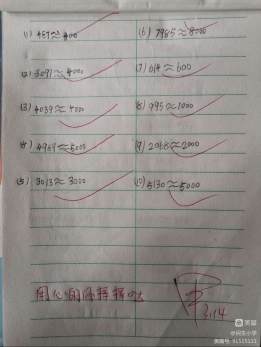 (1) 487≈400
(6) 7985≈8000
(2) 3091≈4000
(7) 614≈600
(3) 4039≈4000
(8) 995≈1000
(4) 4989≈5000
(9) 2068≈2000
(5) 3013≈3000
(10) 5130≈5000
3.14
美篇
@民生小学
美篇号: 91515333